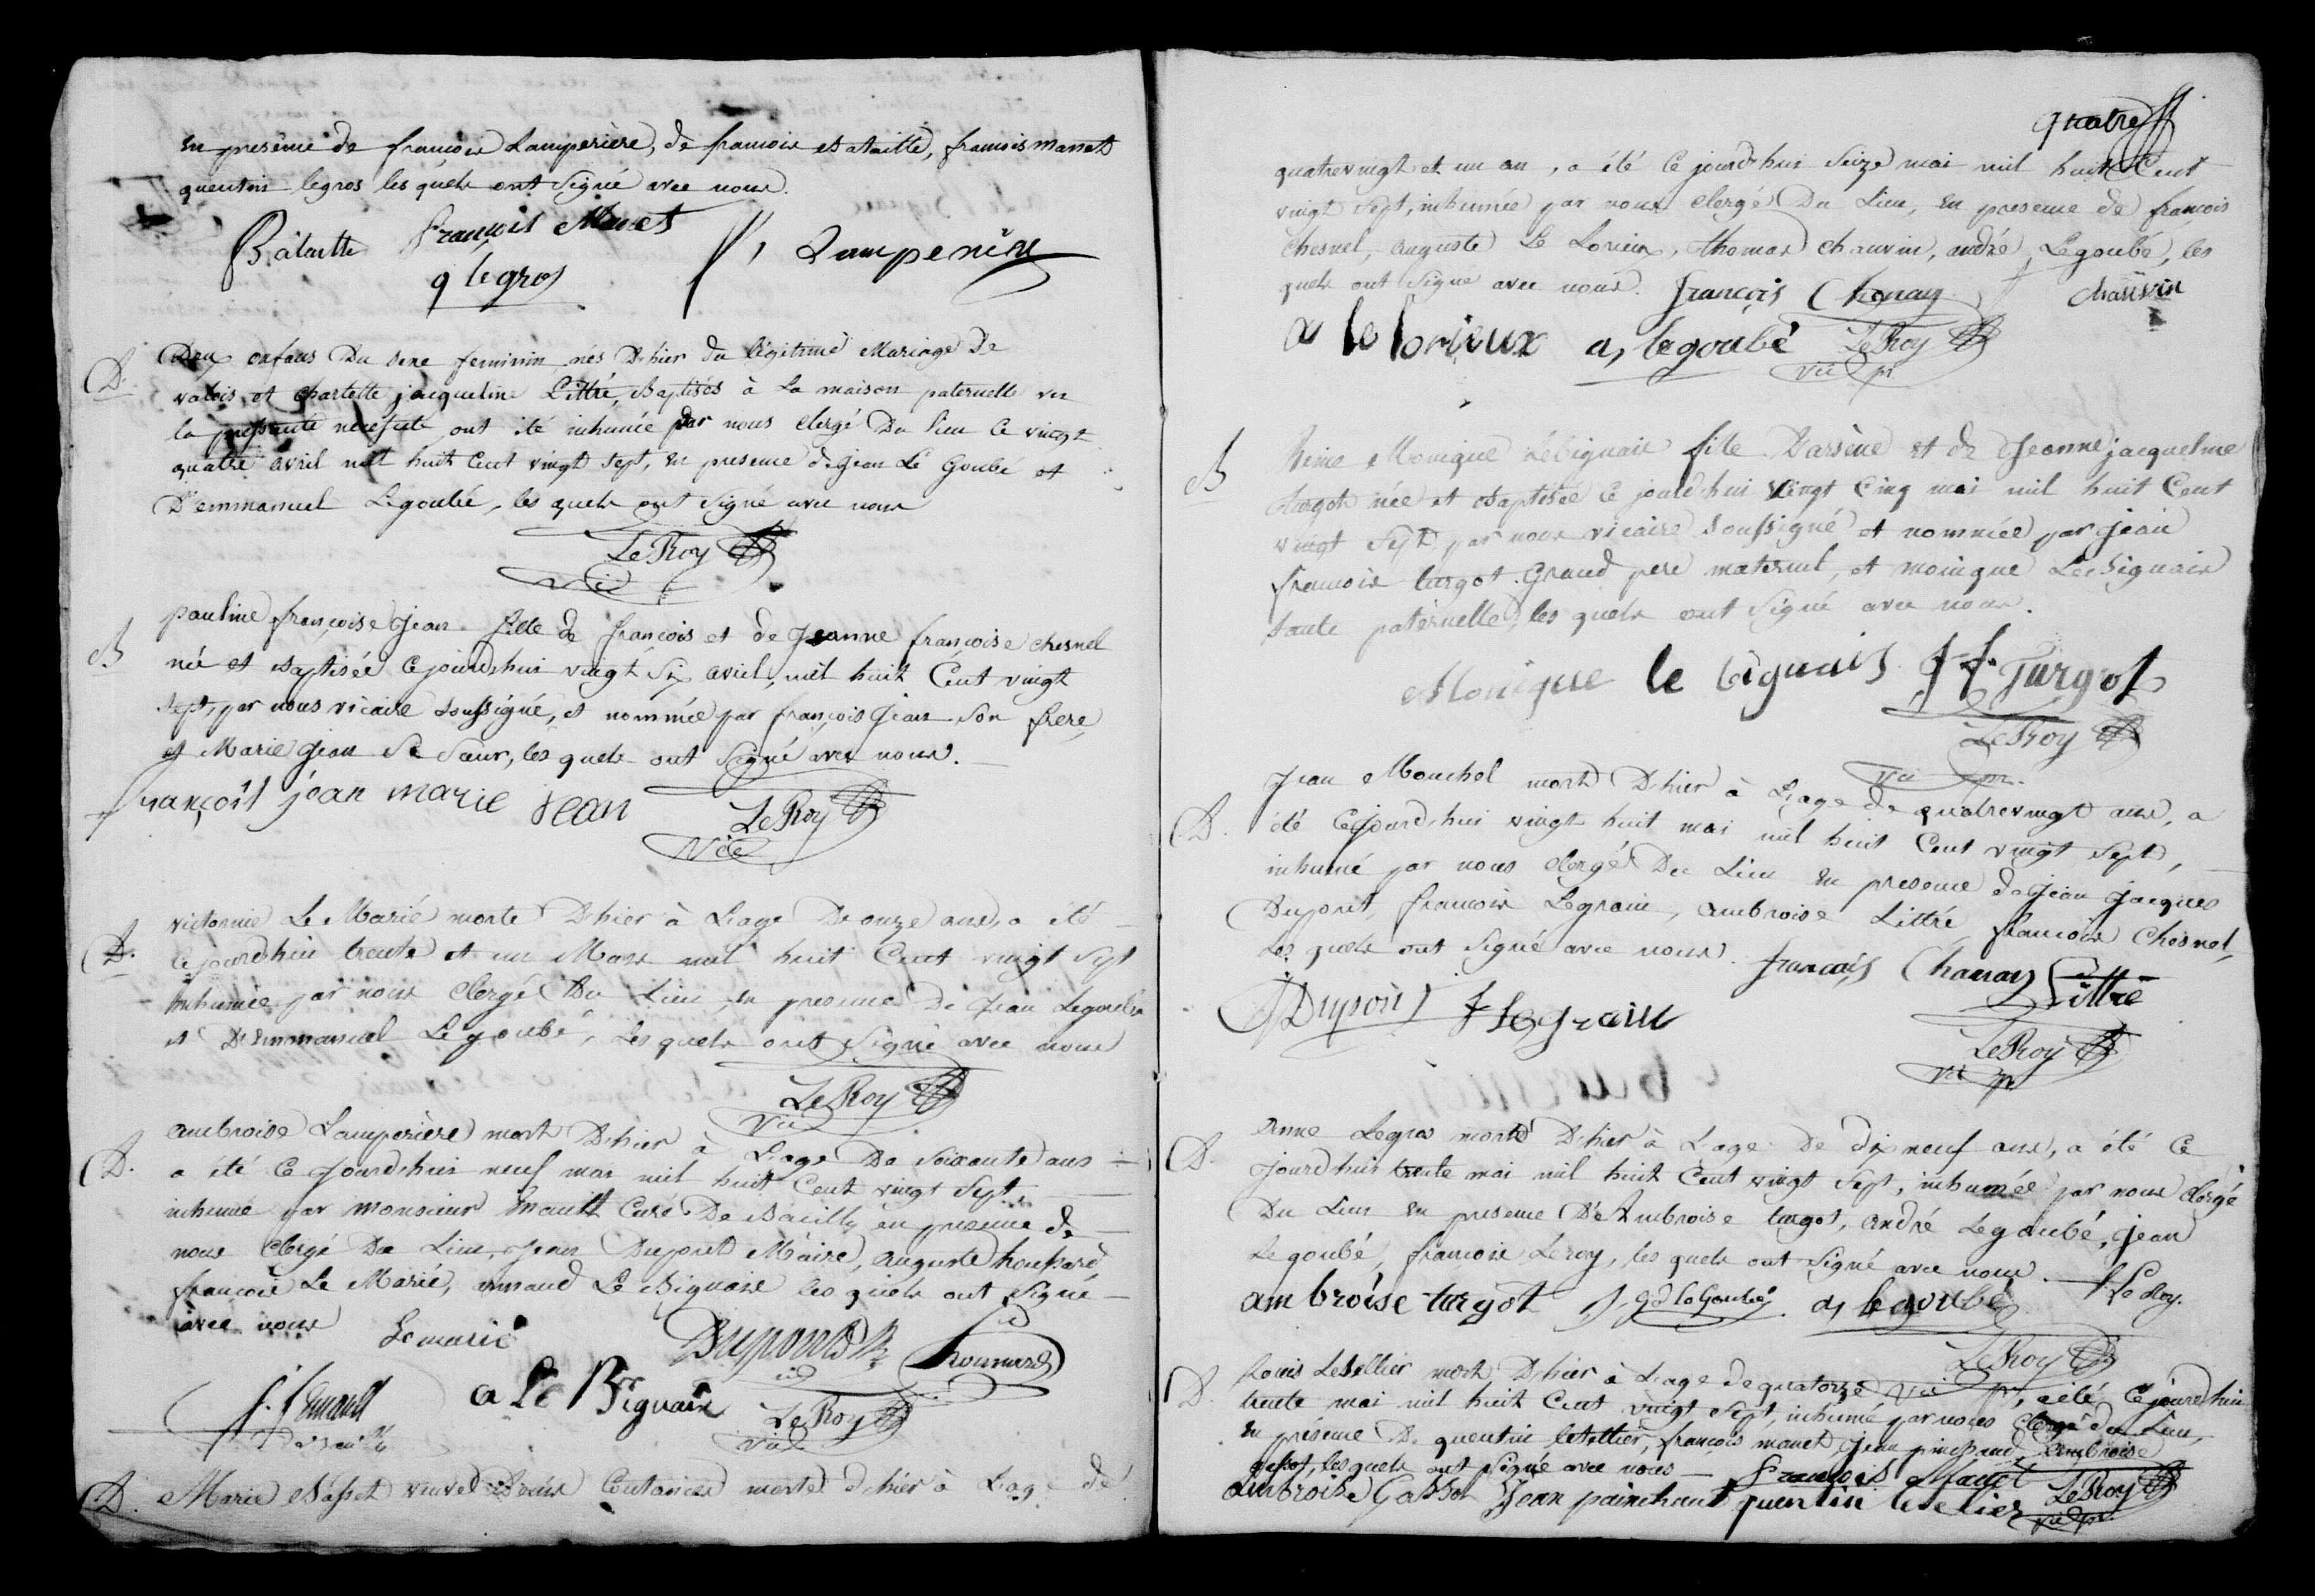 en presence de francois Lamperiere, de francois Bataille, francois Manet
quentin legros les quels ont signé avec nous.
Bataille françois Manet f, Lamperiere
q legros
D. Deux enfans du sexe feminin nés D'hier du légitime Mariage De
valois et charlotte jacqueline Littré, Baptisés à la maison paternelle vu
la pressante necessité ont été inhumée par nous clergé Du lieu ce vingt
quatre avril mil huit Cent vingt sept, en presence de jean Le Goubé et
D'emmanuel Legoubé, les quels ont signé avec nous
LeRoy
vic
B pauline françoise Jean fille de françois et de Jeanne françoise chesnel
née et Baptisée ce jourd'hui vingt six avril, mil huit Cent vingt
sept, par nous vicaire soussigné, et nommée par françois Jean son frere
et Marie Jean sa sœur, les quels ont signé avec nous.
françois jean marie jean LeRoy
Vic
D. victorine Le Marié morte D'hier à L'age De onze ans, a été
ce jourd'hui trente et un Mars mil huit Cent vingt sept
inhumée par nous clergé Du Lieu, en presence De Jean Legoubé
et D'Emmanuel Le goubé, les quels ont signé avec nous
LeRoy
Vic
D. ambroise Lamperiere mort D'hier à L'age De soixante ans
a été ce jourd'hui neuf mai mil huit Cent vingt sept
inhumé par monsieur Enault Curé De Bacilly en presence de
nous clergé Du Lieu, Jean Dupont Maire, auguste
françois Le Marié, arnaud Le Biguais les quels ont signé
avec nous Lemarié Dupont
f. f Enault a Le Biguais LeRoy
vic
D. Marie Basset veuve Louis Coutances morte d'hier à L'age de
quatre
quatrevingt et un an, a été ce jourd'hui seize mai mil huit Cent
vingt sept, inhumée par nous clergé Du Lieu, en presence de françois
chesnel, auguste Le Lorieux, thomas chauvin, andré Legoubé, les
quels ont signé avec nous. françois Chauvin
a le lorieux a, legoubé LeRoy
vic pr
B Reine Monique LeBiguais fille D'arsène et de Jeanne jacqueline
turgot née et Baptisée ce jourd'hui vingt cinq mai mil huit Cent
vingt sept par nous vicaire soussigné et nommée par jean
francois turgot grand pere maternel, et monique Le Biguais
tante paternelle, les quels ont signé avec nous.
Monique le biguais J f. Turgot
LeRoy
Vic pr.
D. Jean Mouchel mort D'hier à L'age de quatrevingt ans, a
été ce jourd'hui vingt huit mai mil huit Cent vingt sept,
inhumé par nous clergé Du Lieu en presence de jean jacques
Dupont, francois Legrain, ambroise Littré francois chesnel,
les quels ont signé avec nous. francois Littré
JJ Dupont f legrain
LeRoy
vic pr
D. Anne Legros morte D'hier à L'age De dix neuf ans, a été ce
jourd'hui trente mai mil huit Cent vingt sept, inhumée par nous clergé
Du Lieu en presence D'Ambroise turgot, andré Legoubé, jean
Le goubé, francois Leroy, les quels ont signé avec nous. f Le Roy.
ambroise turgot J, le Goubey a, legoubé
LeRoy
vic pr
D. Louis Letellier mort D'hier à L'age de quatorze, a été ce jourd'hui
trente mai mil huit Cent vingt sept, inhumé par nous clergé du Lieu,
en présence De quentin letellier, francois manet jean painchaud, ambroise
gassot, les quels ont signé avec nous françois Manet
ambroise Gassot Jean painchaut quentin letelier LeRoy
vic pr